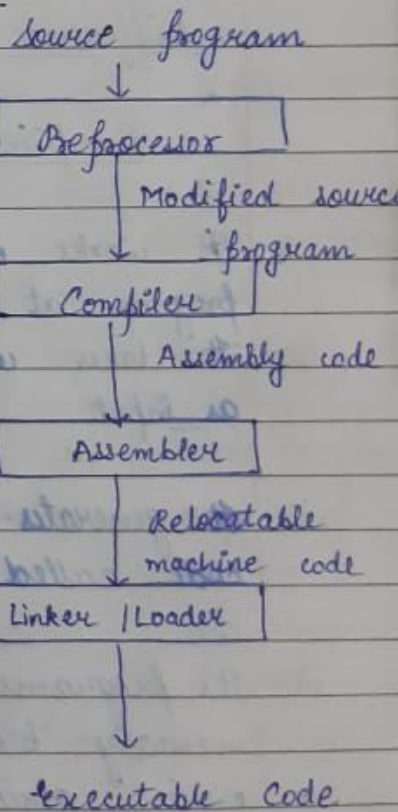 Source program
Preprocessor
Modified source
program
Compiler
Assembly code
Assembler
Relocatable
machine code
Linker / Loader
executable code